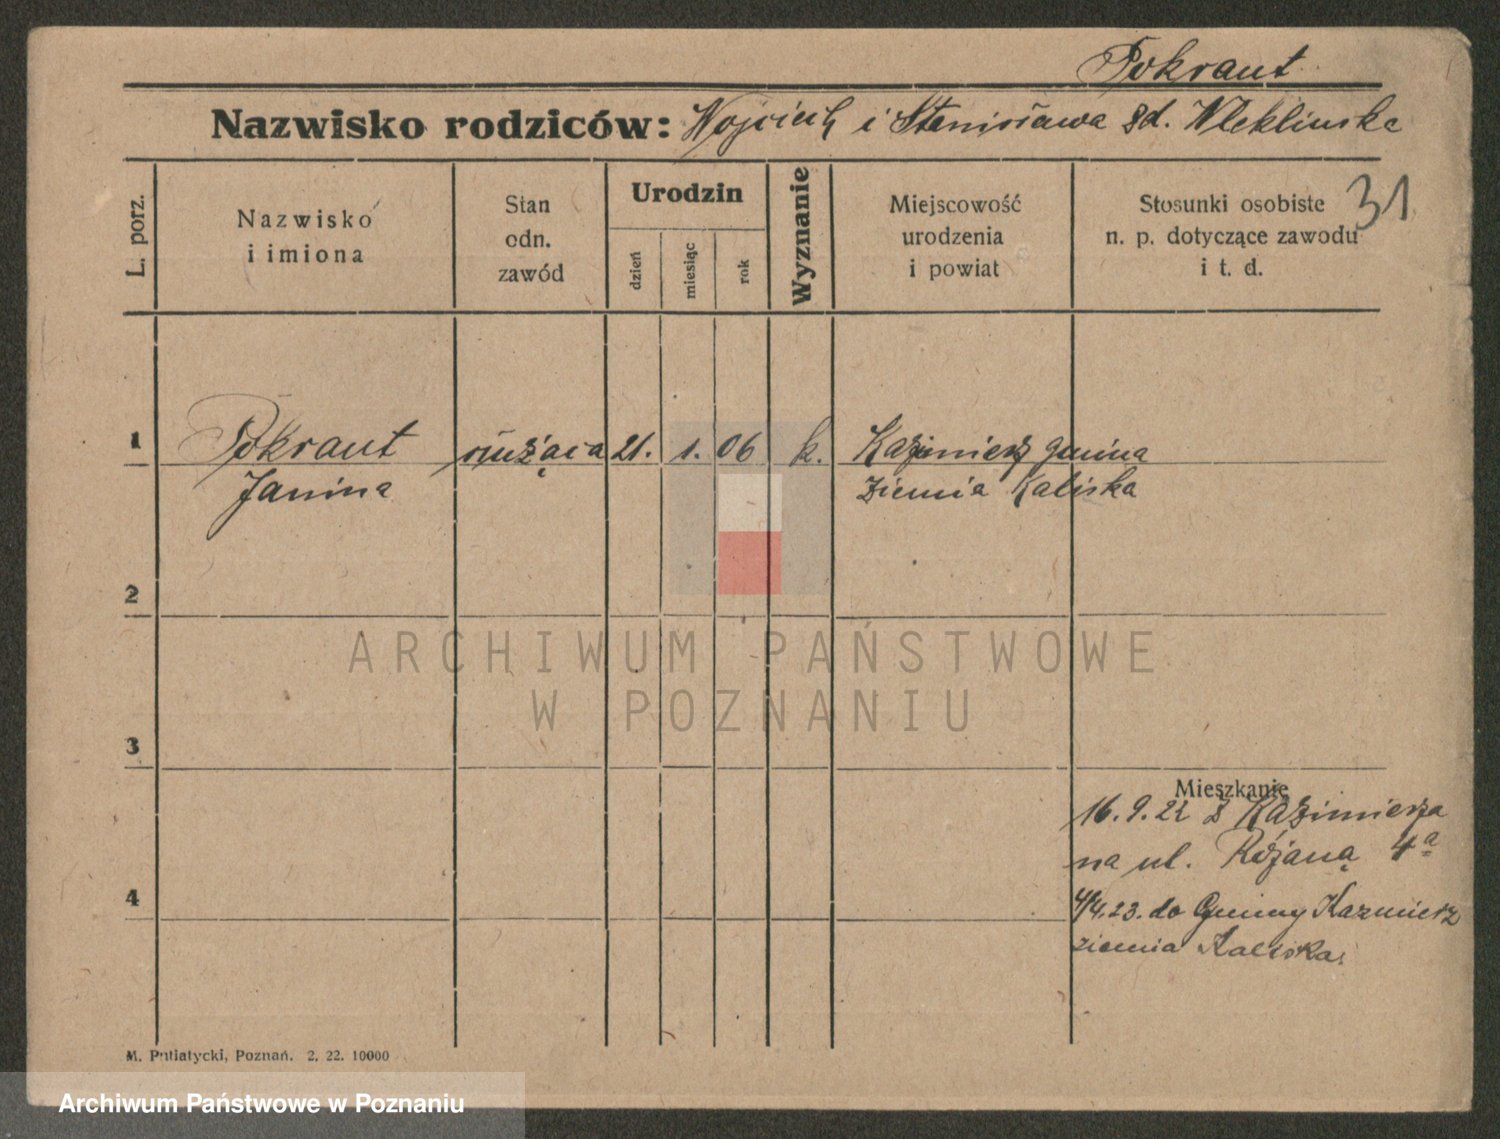 Pokraut
Nazwisko rodziców: Wojciech i Stanisława
31
L. porz.
Nazwisko
i imiona
Stan
odn.
zawód
Urodzin
dzień
miesiąc
rok
Wyznanie
Miejscowość
urodzenia
i powiat
Stosunki osobiste
n. p. dotyczące zawodu
i t. d.
1
Pokraut służąca 21. 1. 06 k. Kazimierz gmina
Janina ziemia Kaliska
2
ARCHIWUM PAŃSTWOWE
W POZNANIU
3
Mieszkanie
16.9.22 z Kazimierza
na ul. Różaną 4a
4
4/4.23. do Gminy Kazmierz
ziemia Kaliska.
M. Putiatycki, Poznań. 2. 22. 10000
Archiwum Państwowe w Poznaniu